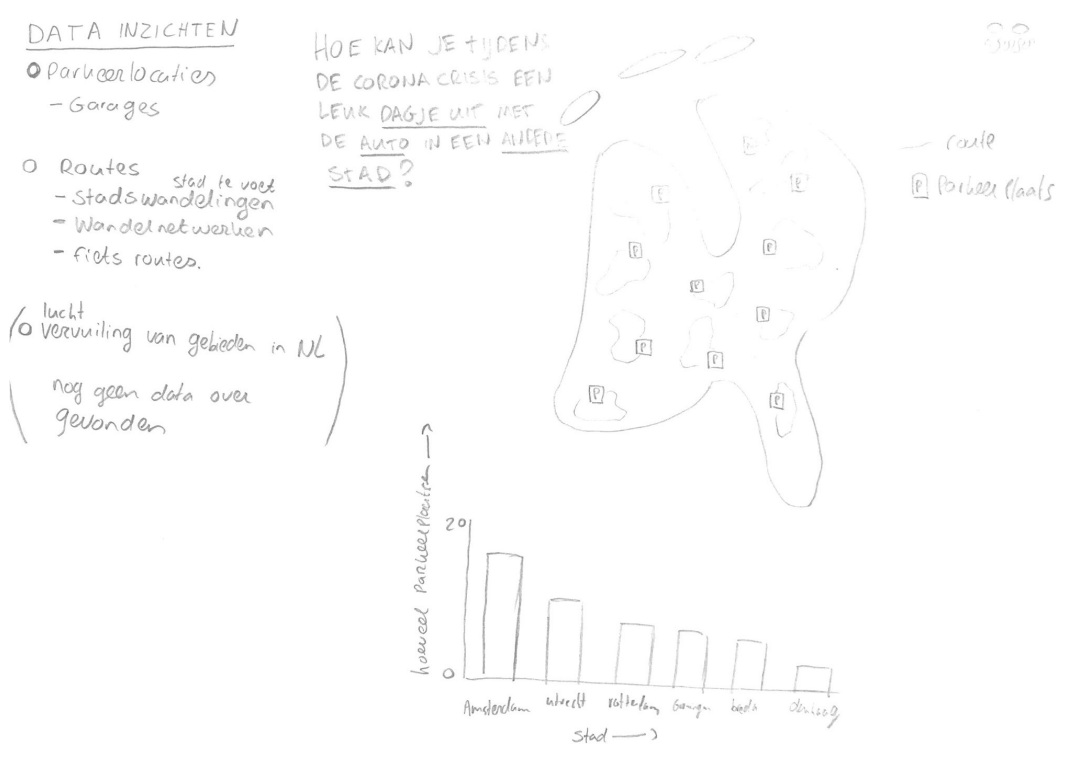 DATA INZICHTEN
O Parkeerlocaties
- Garages
O Routes
stad te voet
- Stadswandelingen
- Wandelnetwerken
- fiets routes.
(O lucht
vervuiling van gebieden in NL
nog geen data over
gevonden)
HOE KAN JE TIJDENS
DE CORONA CRISIS EEN
LEUK DAGJE UIT MET
DE AUTO IN EEN ANDERE
STAD?
route
P Parkeerplaats
P
P
P
P
P
P
P
P
P
P
P
P
hoeveel parkeerplaatsen
20
0
Amsterdam utrecht rotterdam Groningen breda den haag
Stad